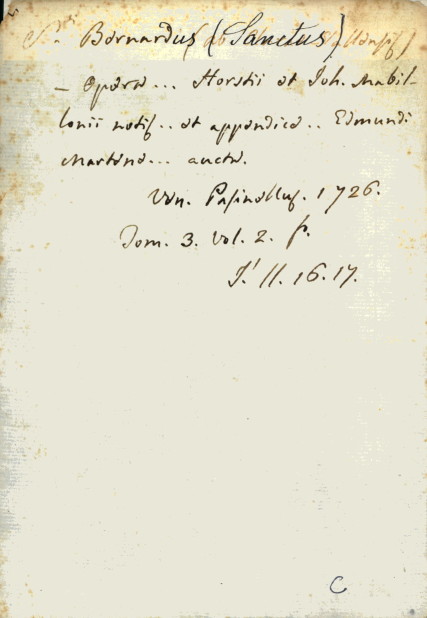 S. Bernardus (Sanctus)
- Opera... Horstii et Joh. Mabil-
lonii notis.. et appendice.. Edmundi
Martene... aucta.
Ven. Pasinellus. 1726.
Tom. 3. Vol. 2. f.
J' 11. 16. 17.
C